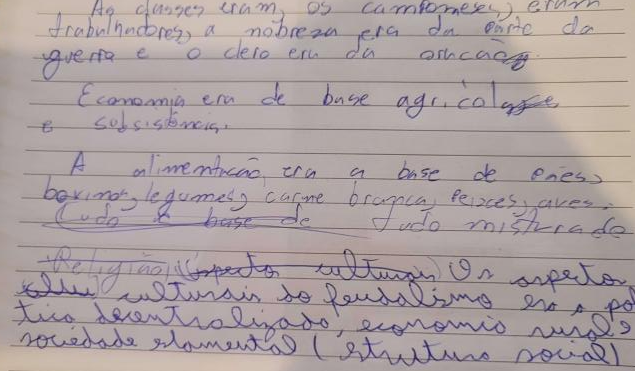 As classes eram, os camponeses, eram
trabalhadores, a nobreza era da parte da
guerra e o clero era da oração
Economia era de base agrícola
e subsistência.
A alimentação era a base de
bovinos, legumes, carne branca, peixes, aves.
tudo é base de tudo misturado
Religião, (aspecto culturais) Os aspecto
culturais do feudalismo era a polí
tica decentralizada, economia rural e
sociedade estamental (estrutura social)